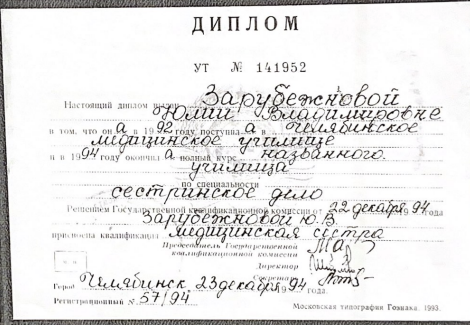 ДИПЛОМ
УТ № 141952
Настоящий диплом выдан Зарубежновой
Юлии Владимировне
в том, что она в 1992 году поступила в Челябинское
медицинское училище
и в 1994 году окончила полный курс названного
училища
по специальности
сестринское дело
Решением Государственной квалификационной комиссии от 22 декабря 1994 года
Зарубежновой Ю.В.
присвоена квалификация медицинская сестра
Председатель Государственной
квалификационной комиссии
Директор
Секретарь
Город Челябинск, 23 декабря 1994 года.
Регистрационный № 57/94
Московская типография Гознака. 1993.